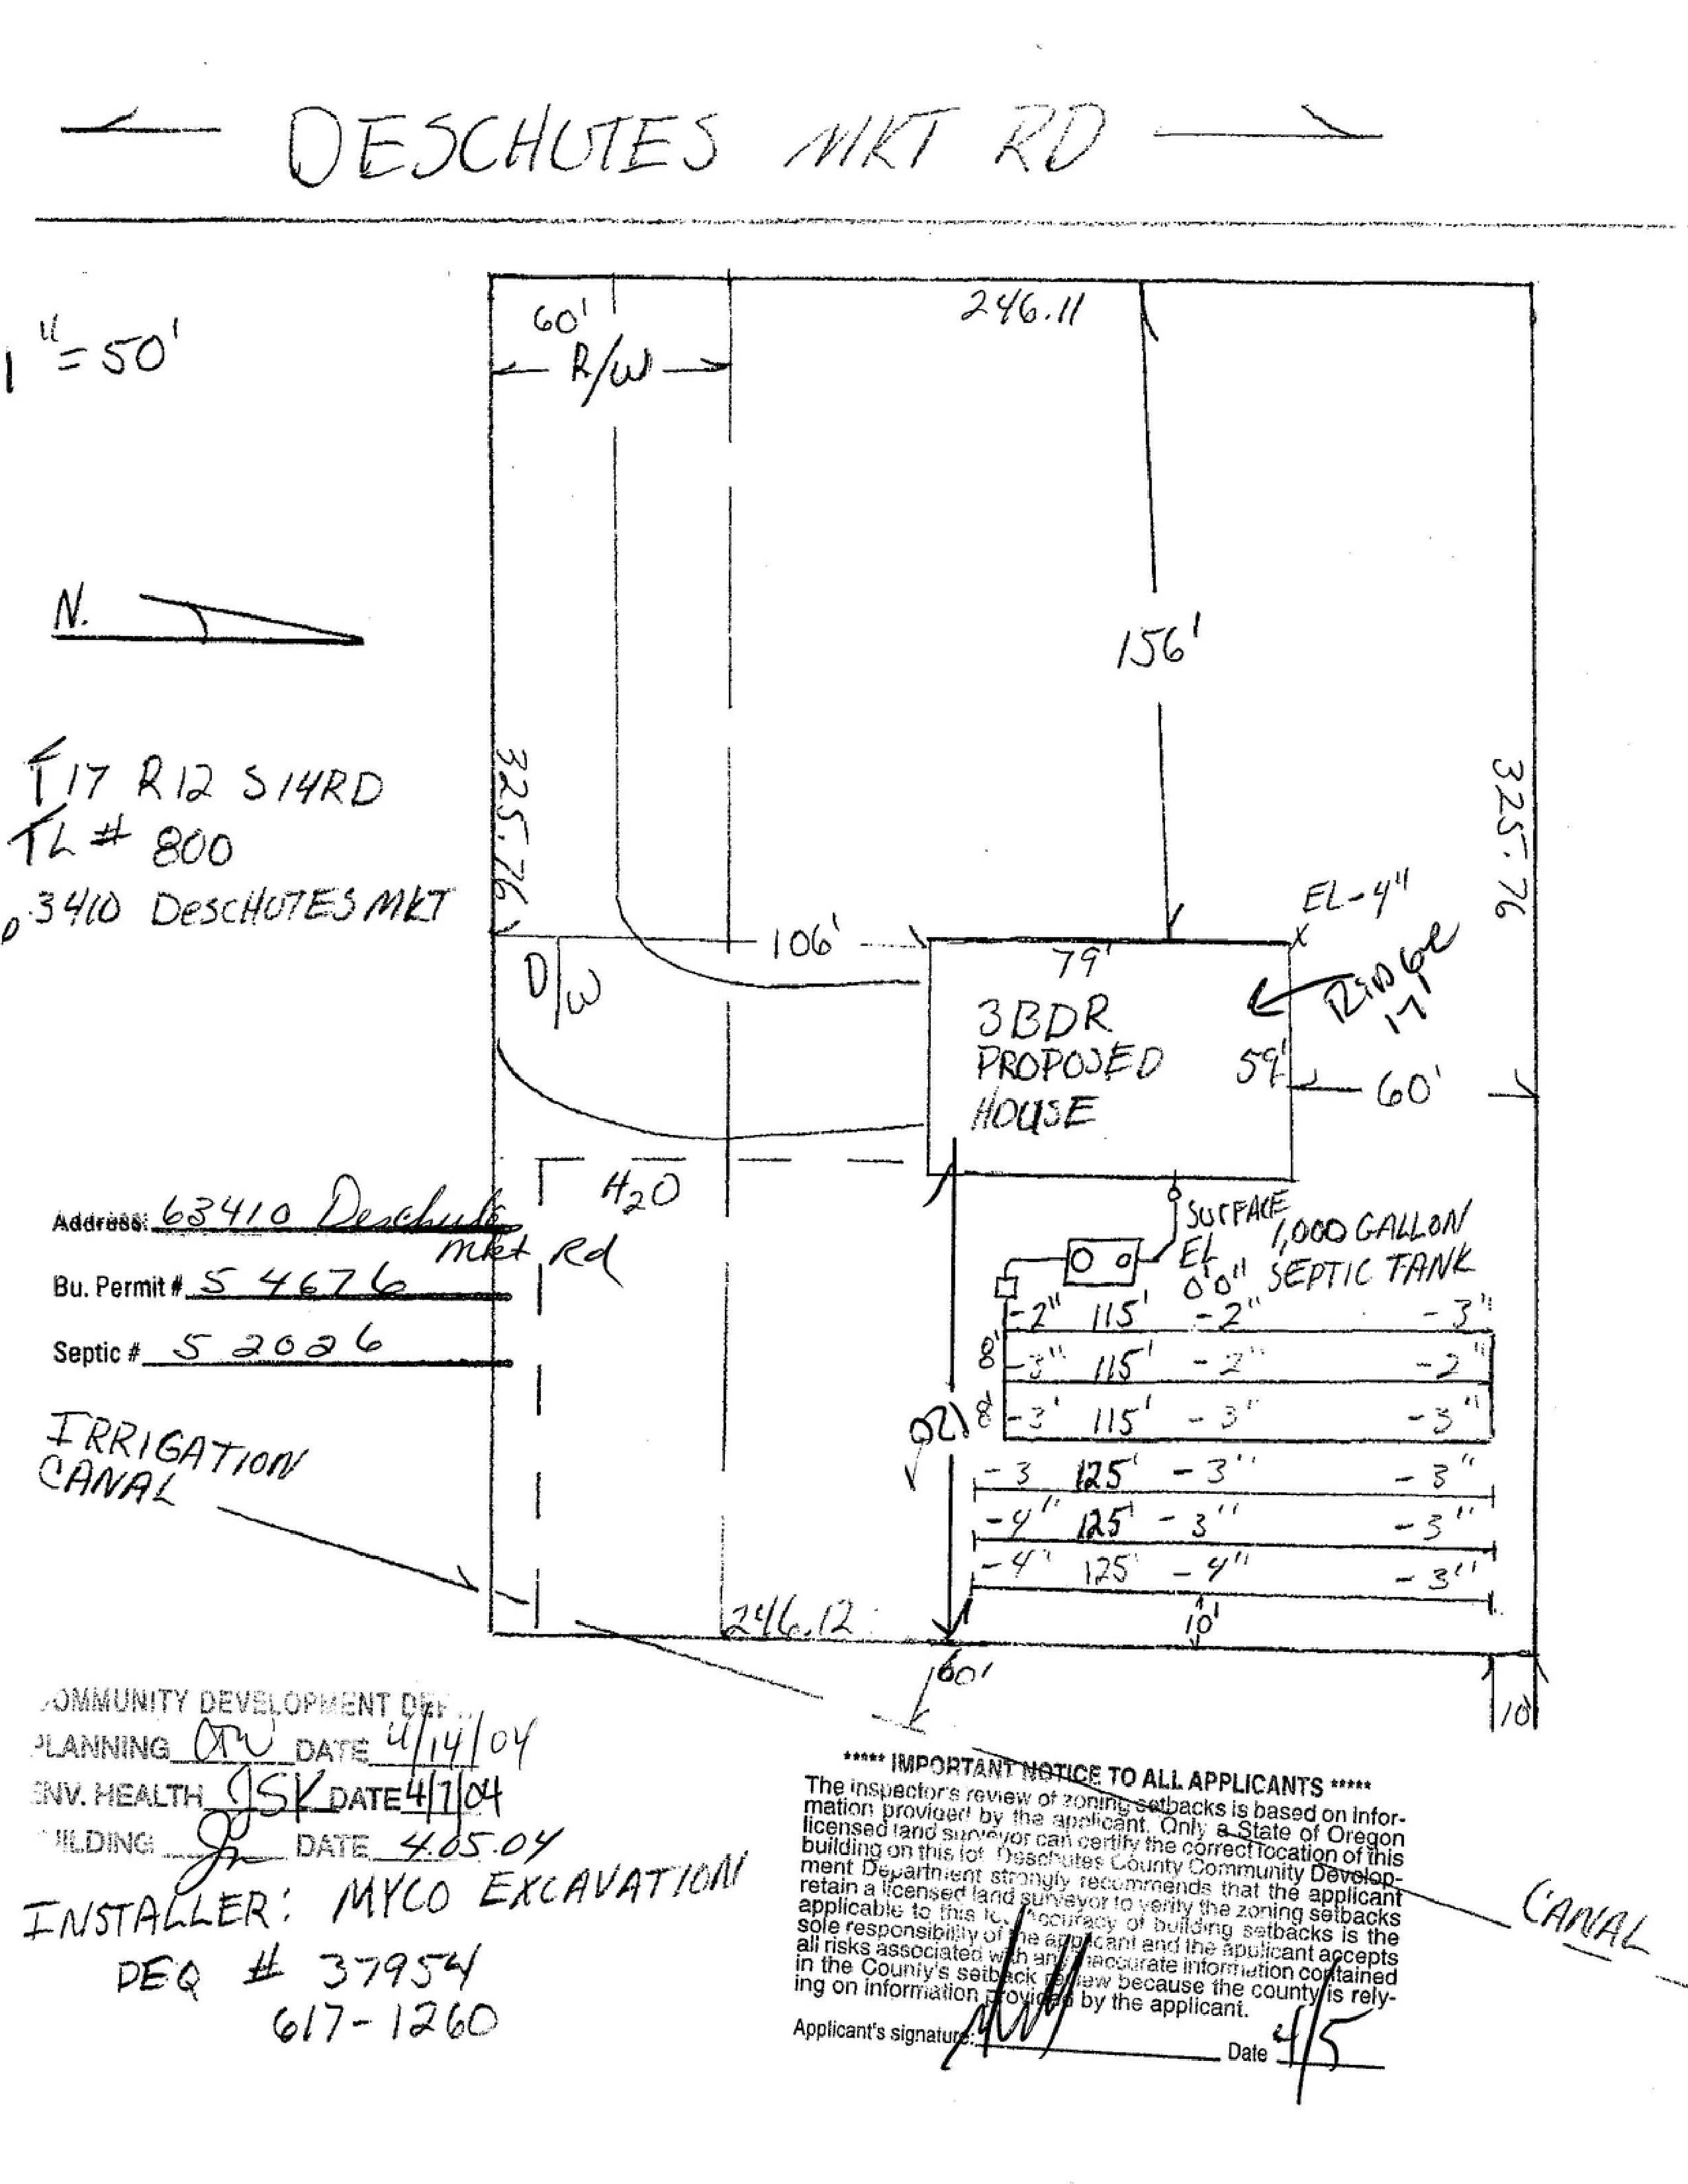 DESCHUTES MKT RD
1" = 50'
60'
R/W
246.11
N.
156'
325.76
325.76
T17 R12 S14RD
TL # 800
3410 DESCHUTES MKT
EL-4"
X
RIDGE
17'
106'
D/W
79'
3 BDR
PROPOSED
HOUSE
59'
60'
H2O
Address: 63410 Deschutes
Mkt Rd
Bu. Permit # S 4676
Septic # S 2026
SURFACE
EL
0'0"
1,000 GALLON
SEPTIC TANK
-2" 115' -2" -3"
8' -3" 115' -2" -2"
8' -3' 115' -3" -3"
-3 125' -3" -3"
-4" 125' -3" -3"
-4" 125' -4" -3"
120'
IRRIGATION
CANAL
246.12
10'
60'
10'
COMMUNITY DEVELOPMENT DEP
PLANNING DATE 4/14/04
ENV. HEALTH JSK DATE 4/7/04
BUILDING DATE 4.05.04
INSTALLER: MYCO EXCAVATION
DEQ # 37954
617-1260
***** IMPORTANT NOTICE TO ALL APPLICANTS *****
The inspector's review of zoning setbacks is based on infor-
mation provided by the applicant. Only a State of Oregon
licensed land surveyor can certify the correct location of this
building on this lot. Deschutes County Community Develop-
ment Department strongly recommends that the applicant
retain a licensed land surveyor to verify the zoning setbacks
applicable to this lot. Accuracy of building setbacks is the
sole responsibility of the applicant and the applicant accepts
all risks associated with any inaccurate information contained
in the County's setback review because the county is rely-
ing on information provided by the applicant.
Applicant's signature: Date 4/5
CANAL